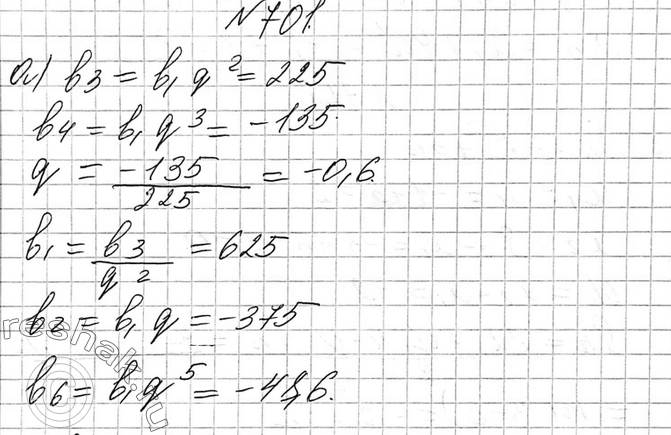 №701.
а) b3 = b1 q² = 225
b4 = b1 q³ = -135.
q = -135/225 = -0,6.
b1 = b3/q² = 625
b2 = b1 q = -375
b6 = b1 q⁵ = -48,6.
reshak.ru